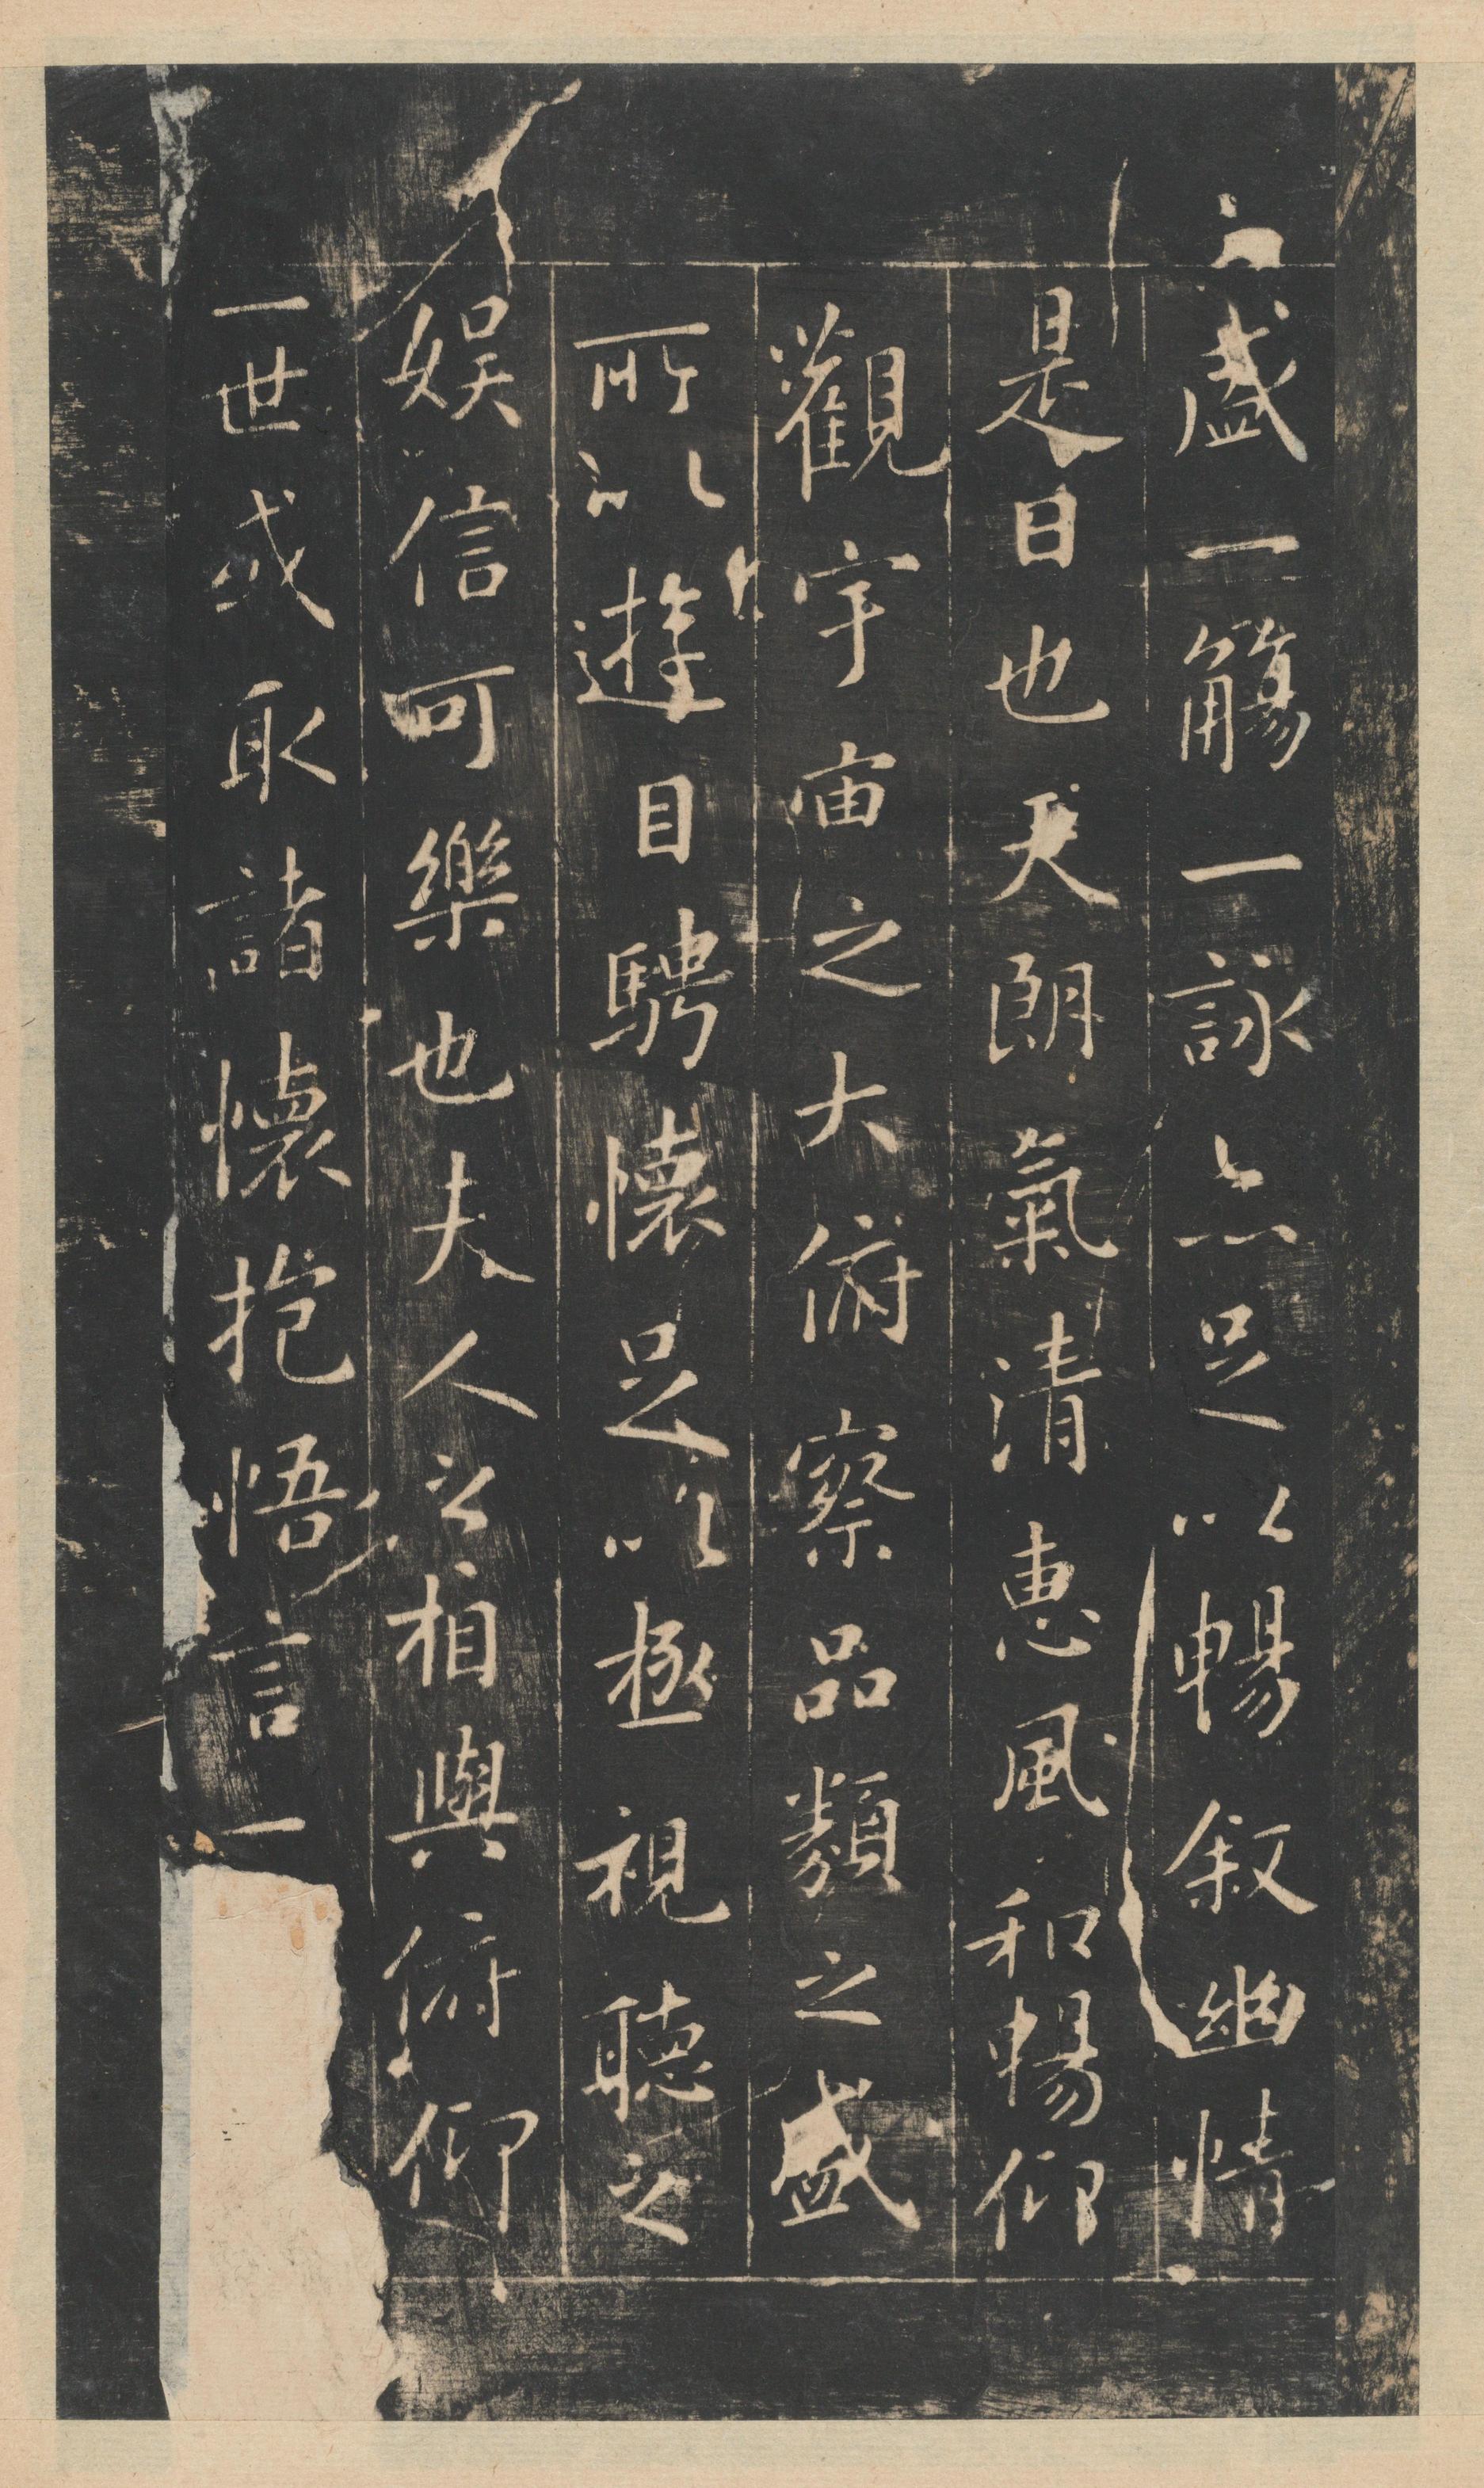 盛一觴一詠亦足以暢叙幽情
是日也天朗氣清惠風和暢仰
觀宇宙之大俯察品類之盛
所以遊目騁懷足以極視聽之
娛信可樂也夫人之相與俯仰
一世或取諸懷抱悟言一